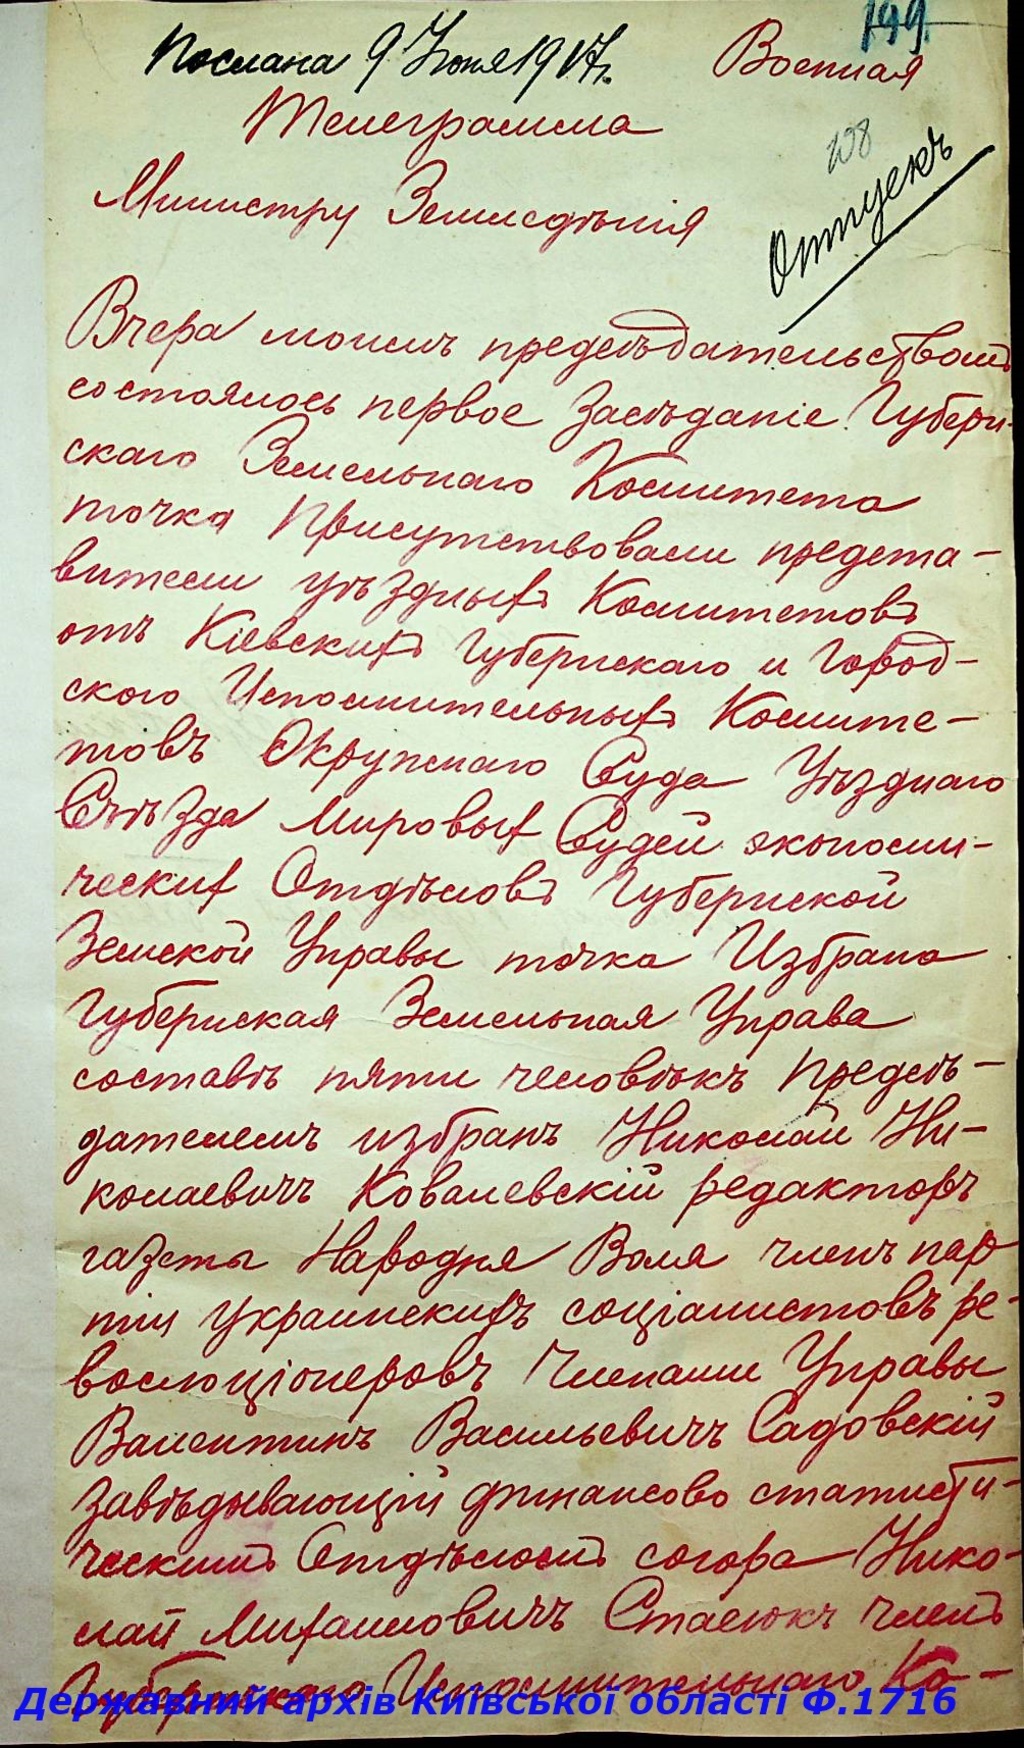 199
Послана 9 Июня 1917 г.
Военная
Телеграмма
108
Отпускъ
Министру Земледѣлія
Вчера моимъ предсѣдательствомъ
состоялось первое засѣданіе Губерн-
скаго Земельнаго Комитета
точка Присутствовали предста-
вители уѣздныхъ Комитетовъ
отъ Кіевскихъ Губернскаго и Город-
ского Исполнительныхъ Комите-
товъ Окружнаго Суда Уѣзднаго
Съѣзда Мировых Судей экономи-
ческих Отдѣловъ Губернской
Земской Управы точка Избрана
Губернская Земельная Управа
составѣ пяти человѣкъ Предсѣ-
дателемъ избранъ Николай Ни-
колаевичъ Ковалевскій редакторъ
газеты Народня Воля членъ пар
тіи украинскихъ соціалистовъ ре-
волюціонеровъ Членами Управы
Валентинъ Васильевичъ Садовскій
завѣдывающій финансово статисти-
ческимъ Отдѣломъ согора Нико-
лай Михаиловичъ Стасюкъ членъ
Губернскаго Исполнительнаго Ко-
Державний архів Київської області Ф.1716